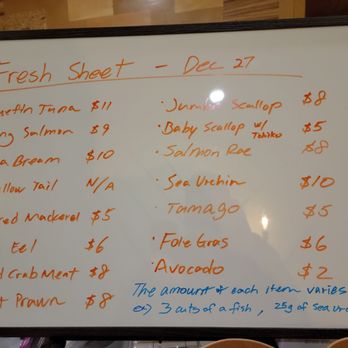 Fresh Sheet - Dec 27
uefin Tuna $11
ng Salmon $9
a Bream $10
llow Tail N/A
red Mackerel $5
Eel $6
d Crab Meat $8
t Prawn $8
· Jumbo Scallop $8
· Baby Scallop w/ Tobiko $5
· Salmon Roe $8
· Sea Urchin $10
· Tamago $5
· Foie Gras $6
· Avocado $2
The amount of each item varies
ex) 3 cuts of a fish, 25g of sea urc